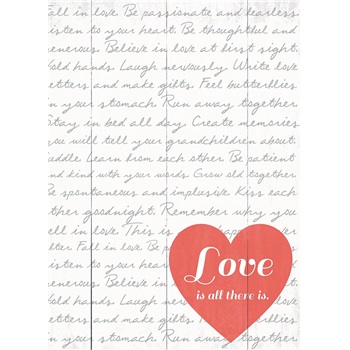 Fall in love. Be passionate and fearless.
listen to your heart. Be thoughtful and
generous. Believe in love at first sight.
Hold hands. Laugh nervously. Write love
letters and make gifts. Feel butterflies
in your stomach. Run away together
Stay in bed all day. Create memories
you will tell your grandchildren about.
uddle. Learn from each other. Be patient
and kind with your words. Grow old together
Be spontaneous and implusive. Kiss each
other goodnight. Remember why you
ell in love. This is
fter. Fall in love. B
isten to your hear
enerous. Believe
old hands. Laugh
etters and make
n your stomach. Run away together
Love
is all there is.